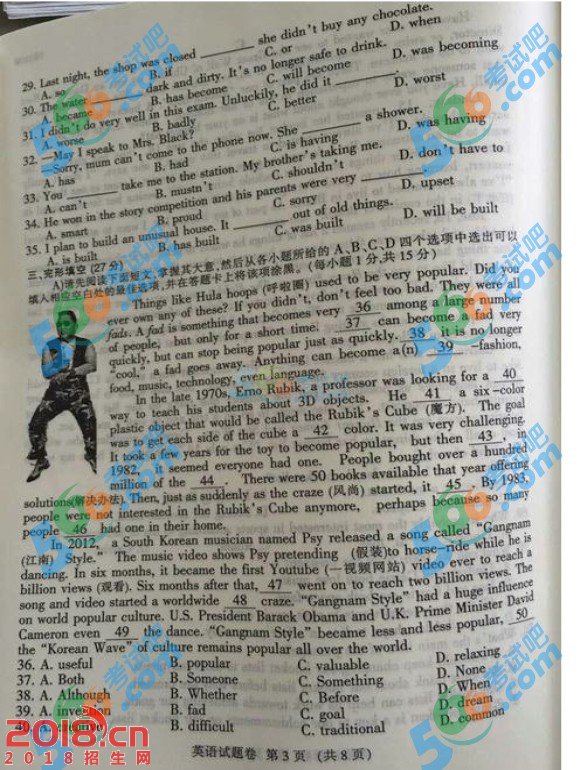 29. Last night, the shop was closed ______ she didn't buy any chocolate.
A. so B. if C. or D. when
30. The water ______ dark and dirty. It's no longer safe to drink.
A. became B. has become C. will become D. was becoming
31. I didn't do very well in this exam. Unluckily, he did it ______.
A. worse B. badly C. better D. worst
32. —May I speak to Mrs. Black?
—Sorry, mum can't come to the phone now. She ______ a shower.
A. has B. had C. is having D. was having
33. You ______ take me to the station. My brother's taking me.
A. can't B. mustn't C. shouldn't D. don't have to
34. He won in the story competition and his parents were very ______.
A. smart B. proud C. sorry D. upset
35. I plan to build an unusual house. It ______ out of old things.
A. is built B. has built C. was built D. will be built
三、完形填空 (27分)
A)请先阅读下面短文,掌握其大意,然后从各小题所给的 A、B、C、D 四个选项中选出可以
填入相应空白处的最佳选项,并在答题卡上将该项涂黑。(每小题 1 分,共 15 分)
Things like Hula hoops (呼啦圈) used to be very popular. Did you
ever own any of these? If you didn't, don't feel too bad. They were all
fads. A fad is something that becomes very 36 among a large number
of people, but only for a short time. 37 can become a fad very
quickly, but can stop being popular just as quickly. 38 it is no longer
"cool," a fad goes away. Anything can become a(n) 39 —fashion,
food, music, technology, even language.
In the late 1970s, Erno Rubik, a professor was looking for a 40
way to teach his students about 3D objects. He 41 a six-color
plastic object that would be called the Rubik's Cube (魔方). The goal
was to get each side of the cube 42 color. It was very challenging.
It took a few years for the toy to become popular, but then 43, in
1982, it seemed everyone had one. People bought over a hundred
million of the 44. There were 50 books available that year offering
solutions(解决办法). Then, just as suddenly as the craze (风尚) started, it 45. By 1983,
people were not interested in the Rubik's Cube anymore, perhaps because so many
people 46 had one in their home.
In 2012, a South Korean musician named Psy released a song called "Gangnam
(江南) Style." The music video shows Psy pretending (假装)to horse-ride while he is
dancing. In six months, it became the first Youtube (一视频网站) video ever to reach a
billion views (观看). Six months after that, 47 went on to reach two billion views. The
song and video started a worldwide 48 craze. "Gangnam Style" had a huge influence
on world popular culture. U.S. President Barack Obama and U.K. Prime Minister David
Cameron even 49 the dance. "Gangnam Style" became less and less popular, 50
the "Korean Wave" of culture remains popular all over the world.
36. A. useful B. popular C. valuable D. relaxing
37. A. Both B. Someone C. Something D. None
38. A. Although B. Whether C. Before D. When
39. A. invention B. fad C. goal D. dream
40. A. creative B. difficult C. traditional D. common
英语试题卷 第 3 页 (共 8 页)
2018.cn
2018招生网
566考试吧.com
566考试吧.com
566考试吧.com
566考试吧.com
566考试吧.com